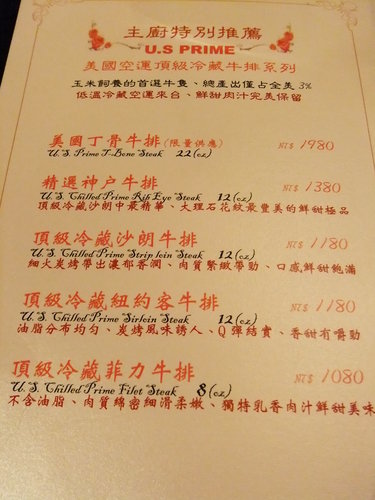 主廚特別推薦
U.S PRIME
美國空運頂級冷藏牛排系列
玉米飼養的首選牛隻、總產出僅占全美 3%
低溫冷藏空運來台、鮮甜肉汁完美保留
美國丁骨牛排(限量供應) NT$ 1980
U.S. Prime T-Bone Steak 22(oz)
精選神戶牛排 NT$ 1380
U.S. Chilled Prime Rib Eye Steak 12(oz)
頂級冷藏沙朗中最精華、大理石花紋最豐美的鮮甜極品
頂級冷藏沙朗牛排 NT$ 1180
U.S. Chilled Prime Strip loin Steak 12(oz)
細火炭烤帶出濃郁香潤、肉質緊緻帶勁、口感鮮甜飽滿
頂級冷藏紐約客牛排 NT$ 1180
U.S. Chilled Prime Sirloin Steak 12(oz)
油脂分布均勻、炭烤風味誘人、Q彈結實、香甜有嚼勁
頂級冷藏菲力牛排 NT$ 1080
U.S. Chilled Prime Filet Steak 8(oz)
不含油脂、肉質綿密細滑柔嫩、獨特乳香肉汁鮮甜美味